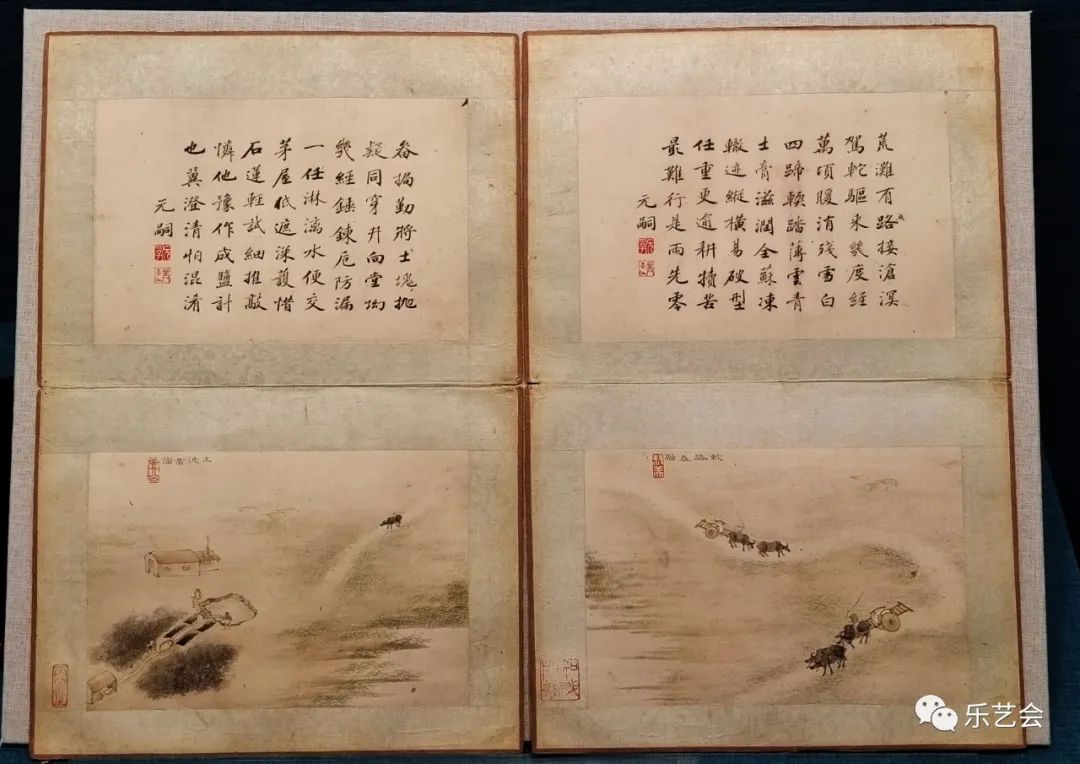 荒灘有路接滄溟
駕駝驅來幾度經
萬頃暖消殘雪白
四蹄輭踏薄雲青
土膏滋潤全蘇凍
轍迹縱橫易破型
任重更逾耕犢苦
最難行是雨先零
元嗣
畚挶勤將土塊拋
疑同穿井向堂坳
幾經錘鍊卮防漏
一任淋漓水便交
茅屋低遮深護惜
石蓮輕試細推敲
憐他豫作成鹽計
也冀澄清怕混淆
元嗣
軟路春融
土池畜滷
乐艺会